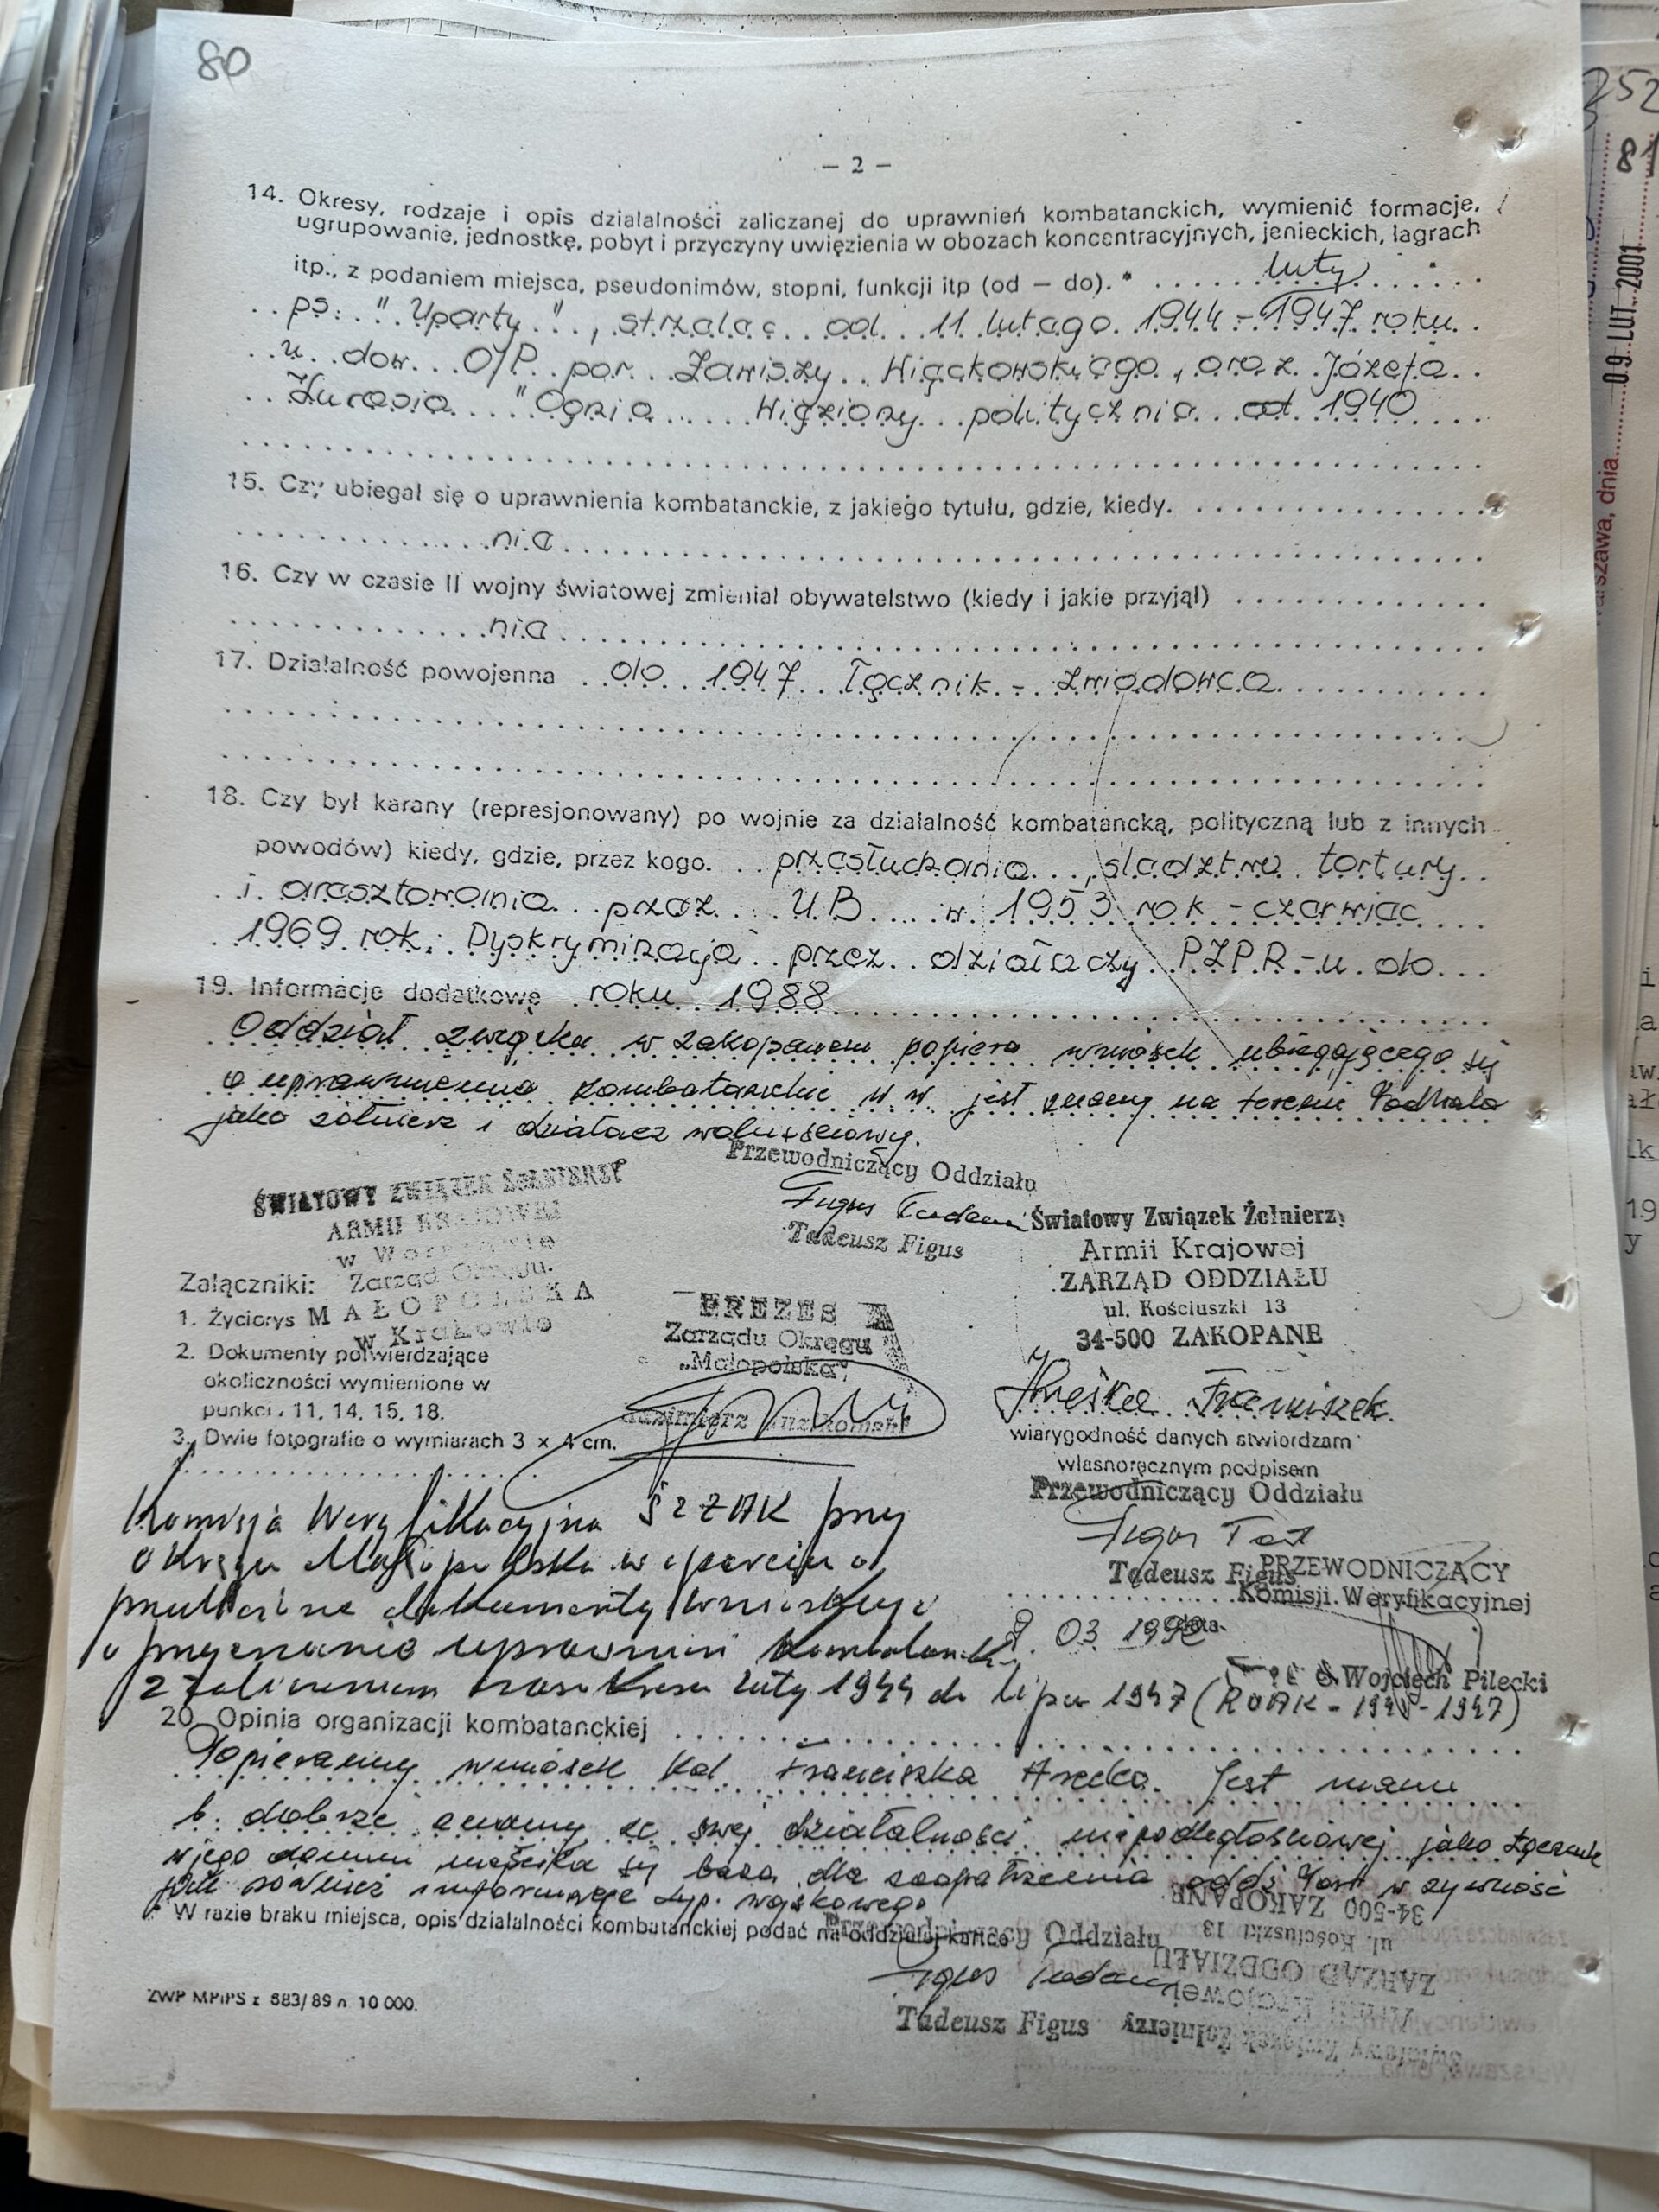 80
252
81
– 2 –
14. Okresy, rodzaje i opis działalności zaliczanej do uprawnień kombatanckich, wymienić formacje,
ugrupowanie, jednostkę, pobyt i przyczyny uwięzienia w obozach koncentracyjnych, jenieckich, lagrach
itp., z podaniem miejsca, pseudonimów, stopni, funkcji itp (od – do). *
luty
ps. "Uparty", strzelec od 11 lutego 1944 – 1947 roku
u dow. O/P. por. Zawiszy Więckowskiego, oraz Józefa
Kurasia "Ognia Więziony politycznie od 1940
15. Czy ubiegał się o uprawnienia kombatanckie, z jakiego tytułu, gdzie, kiedy.
nie
16. Czy w czasie II wojny światowej zmieniał obywatelstwo (kiedy i jakie przyjął)
nie
17. Działalność powojenna do 1947 Łącznik – zwiadowca
18. Czy był karany (represjonowany) po wojnie za działalność kombatancką, polityczną lub z innych
powodów) kiedy, gdzie, przez kogo. przesłuchania, śledztwa tortury
i aresztowania przez U.B. w 1953 rok – czerwiec
1969 rok. Dyskryminacja przez działaczy P.Z.P.R.-u do
19. Informacje dodatkowe roku 1988
Oddział związku w Zakopanem popiera wniosek ubiegającego się
o uprawnienia kombatanckie w.w. jest znany na terenie Podhala
jako żołnierz i działacz wolnościowy.
Przewodniczący Oddziału
Figus Tadeusz
Tadeusz Figus
ŚWIATOWY ZWIĄZEK ŻOŁNIERZY
ARMII KRAJOWEJ
w Warszawie
Zarząd Okręgu
MAŁOPOLSKA
w Krakowie
Światowy Związek Żołnierzy
Armii Krajowej
ZARZĄD ODDZIAŁU
ul. Kościuszki 13
34-500 ZAKOPANE
Załączniki:
1. Życiorys
2. Dokumenty potwierdzające
okoliczności wymienione w
punkci 11, 14, 15, 18.
3. Dwie fotografie o wymiarach 3 x 4 cm.
PREZES
Zarządu Okręgu
„Małopolska"
Kazimierz
Franciszek
wiarygodność danych stwierdzam
własnoręcznym podpisem
Przewodniczący Oddziału
Tadeusz Figus
Komisja Weryfikacyjna ŚZŻAK przy
Okręgu Małopolska w oparciu o
dokumenty wnioskuje
o przyznanie uprawnień kombatanckich
z zaliczeniem okresu luty 1944 do lipca 1947 (ROAK – 1945–1947)
PRZEWODNICZĄCY
Komisji Weryfikacyjnej
03 1992
data
Wojciech Pilecki
20. Opinia organizacji kombatanckiej
Popieramy wniosek Kol. Franciszka. Jest nam
b. dobrze znany ze swej działalności niepodległościowej jako łącznik
w jego domu mieściła się baza dla zaopatrzenia oddz. Part. w żywność
jak również informacje typ. wojskowego
* W razie braku miejsca, opis działalności kombatanckiej podać na oddzielnej kartce
Przewodniczący Oddziału
Figus Tadeusz
Tadeusz Figus
Światowy Związek Żołnierzy
Armii Krajowej
ZARZĄD ODDZIAŁU
ul. Kościuszki 13
34-500 ZAKOPANE
ZWP MPiPS z 583/89 n 10 000.
Warszawa, dnia 09. LUT. 2001